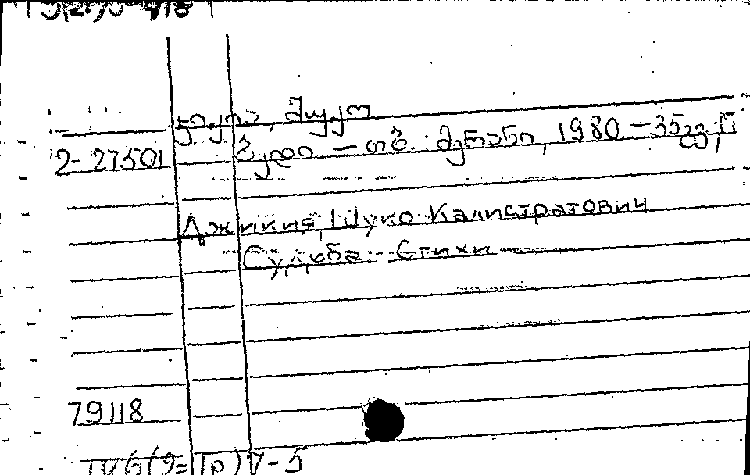 ჯიქია, შუქო
2-27501 ბედი — თბ. მერანი, 1980 — 35გვ.
Джикия, Шуко Калистратович
Судьба. Стихи
79118